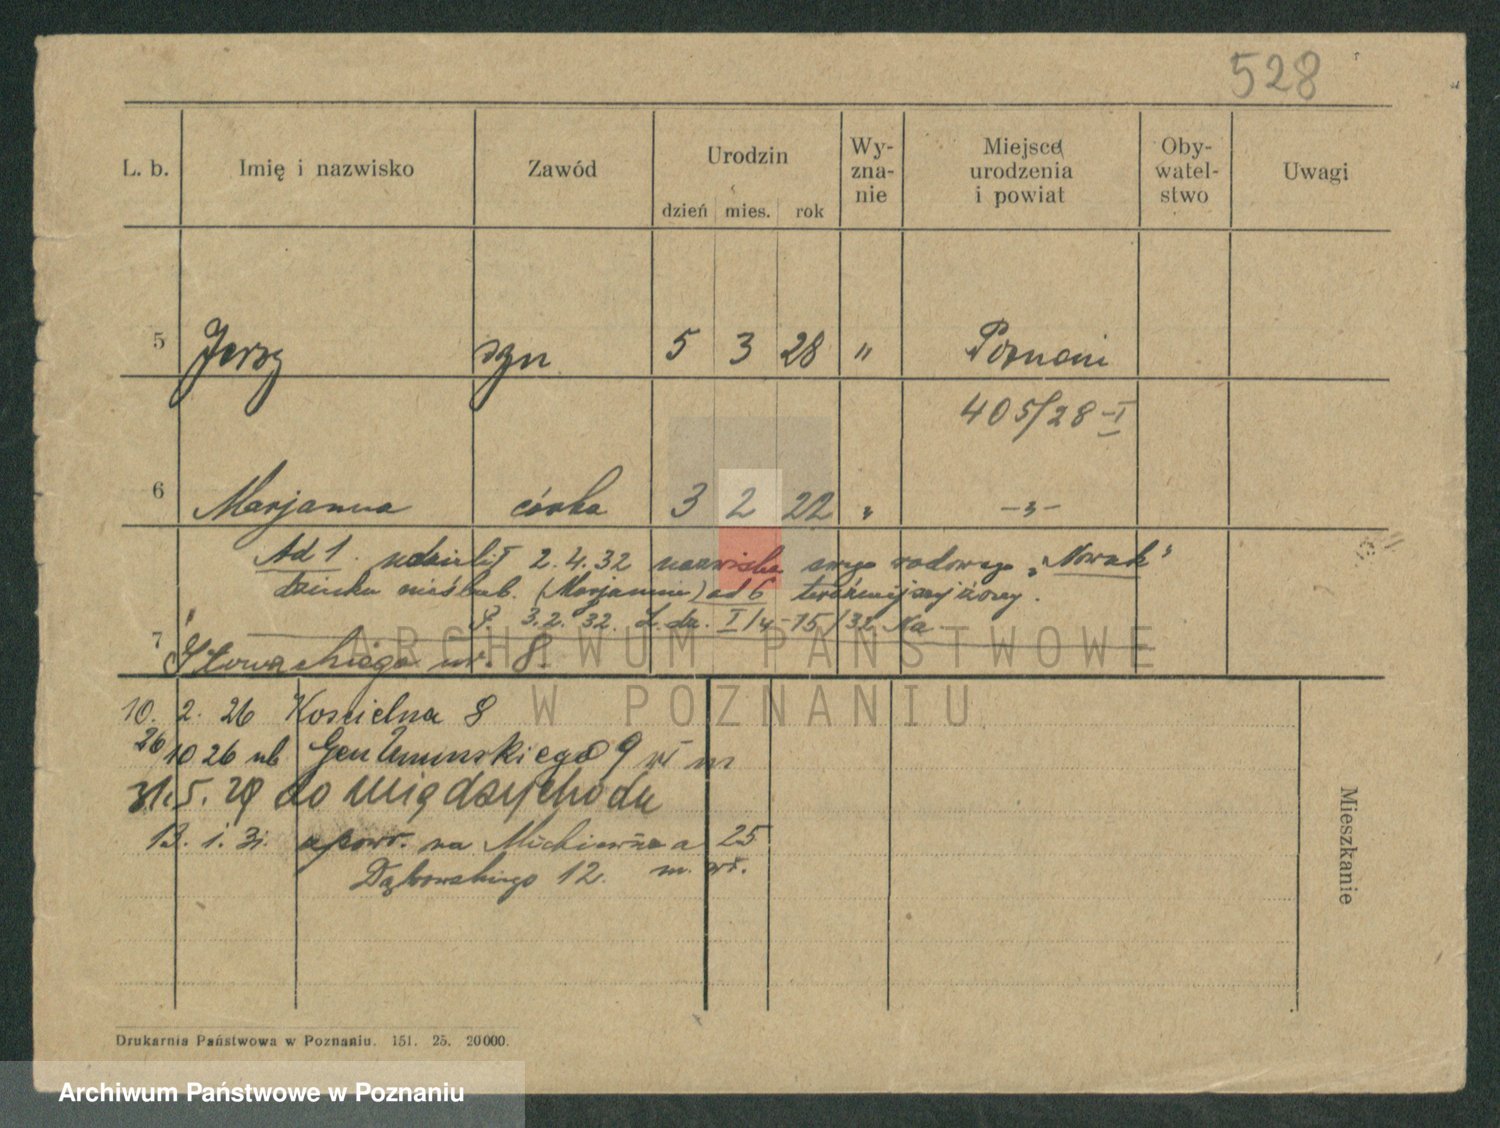 528
L. b. Imię i nazwisko Zawód Urodzin dzień mies. rok Wy-zna-nie Miejsce urodzenia i powiat Oby-watel-stwo Uwagi
5 Jerzy syn 5 3 28 " Poznań
405/28-I
6 Marjanna córka 3 2 22 " -"-
Ad 1. udzielił 2. 4. 32 nazwiska swego rodowego „Nowak"
dziecku nieślub. (Marjannie) ad 6
P. 3. 2. 32. L. dz. I/4-15/32 Na
7 Słowackiego nr. 8.
ARCHIWUM PAŃSTWOWE
W POZNANIU
10. 2. 26 Kościelna 8
26 10 26 ub Gen Umińskiego 9 wł m
31. 5. 29 do Międzychodu
13. 1. 31 a powr. na 25
Dąbrowskiego 12. m. wł.
Mieszkanie
Drukarnia Państwowa w Poznaniu. 151. 25. 20000.
Archiwum Państwowe w Poznaniu